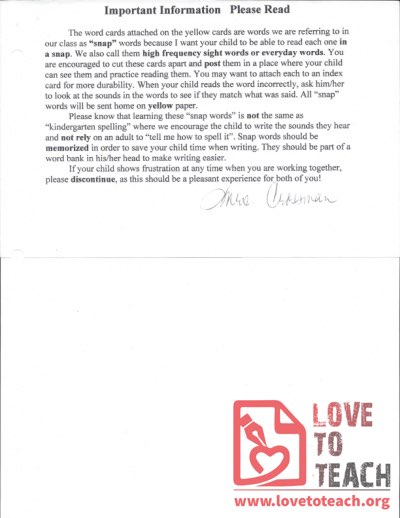 Important Information   Please Read
The word cards attached on the yellow cards are words we are referring to in
our class as “snap” words because I want your child to be able to read each one in
a snap. We also call them high frequency sight words or everyday words. You
are encouraged to cut these cards apart and post them in a place where your child
can see them and practice reading them. You may want to attach each to an index
card for more durability. When your child reads the word incorrectly, ask him/her
to look at the sounds in the words to see if they match what was said. All “snap”
words will be sent home on yellow paper.
Please know that learning these “snap words” is not the same as
“kindergarten spelling” where we encourage the child to write the sounds they hear
and not rely on an adult to “tell me how to spell it”. Snap words should be
memorized in order to save your child time when writing. They should be part of a
word bank in his/her head to make writing easier.
If your child shows frustration at any time when you are working together,
please discontinue, as this should be a pleasant experience for both of you!
LOVE
TO
TEACH
www.lovetoteach.org